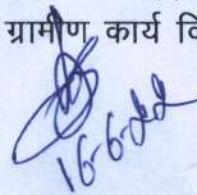 ग्रामीण कार्य वि
16-6-22